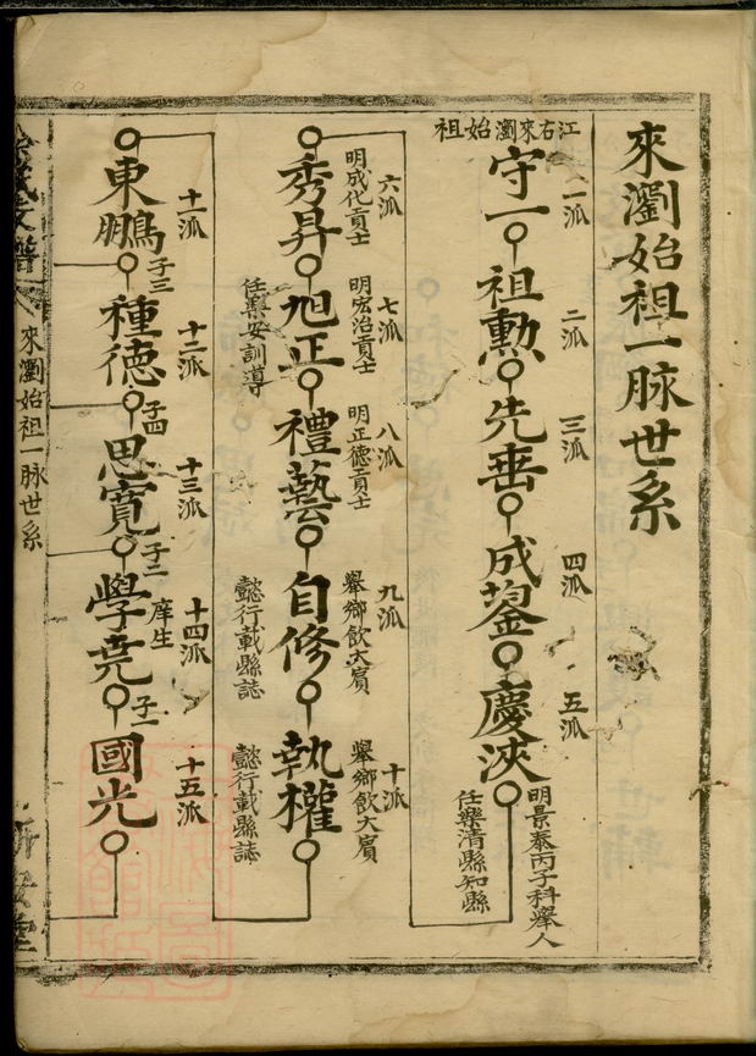 來瀏始祖一脉世系
江右來瀏始祖
一派
守一
二派
祖勲
三派
先垂
四派
成鋆
五派
慶浹
明景泰丙子科舉人
任樂清縣知縣
六派
明成化貢士
秀昇
七派
明宏治貢士
旭正
任樂安訓導
八派
明正德貢士
禮藝
九派
舉鄉飲大賔
自修
懿行載縣誌
十派
舉鄉飲大賔
執權
懿行載縣誌
十一派
東鵬
子三
十二派
種德
子四
十三派
思寬
子二
十四派
庠生
學堯
子一
十五派
國光
氏支譜
來瀏始祖一脉世系